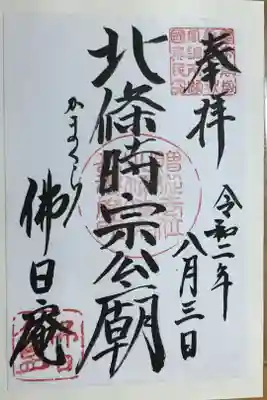 奉拝
令和二年
八月三日
北條時宗公廟
かまくら
佛日庵